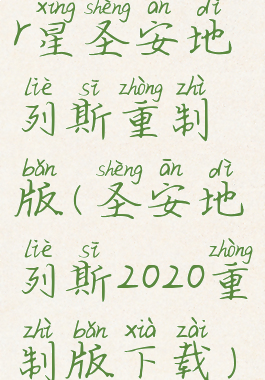 xīng shèng ān dì
r星圣安地
liè sī zhòng zhì
列斯重制
bǎn shèng ān dì
版(圣安地
liè sī zhòng
列斯2020重
zhì bǎn xià zài
制版下载)